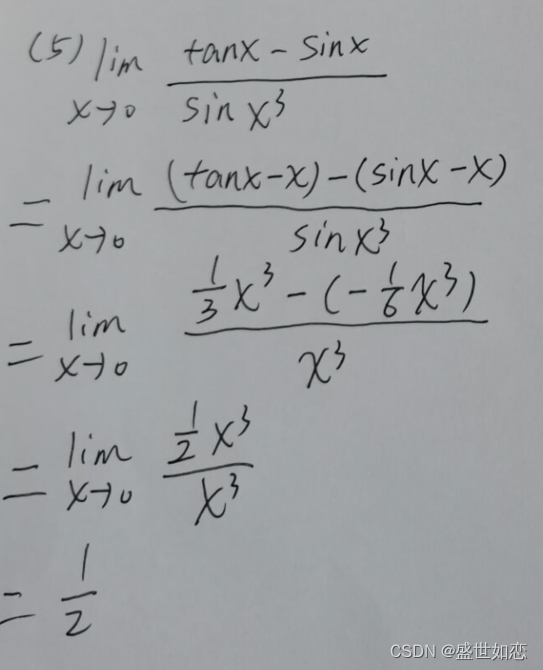 (5) lim x→0 (tanx - sinx)/(sin x³)
= lim x→0 ((tanx-x)-(sinx-x))/(sin x³)
= lim x→0 (1/3 x³ - (-1/6 x³))/(x³)
= lim x→0 (1/2 x³)/(x³)
= 1/2
CSDN @盛世如恋